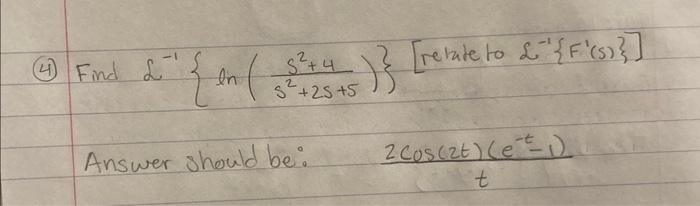 ④ Find ℒ⁻¹ { ln ( (s²+4)/(s²+2s+5) ) } [relate to ℒ⁻¹{F'(s)}]
Answer should be: 2cos(2t)(e⁻ᵗ-1)/t